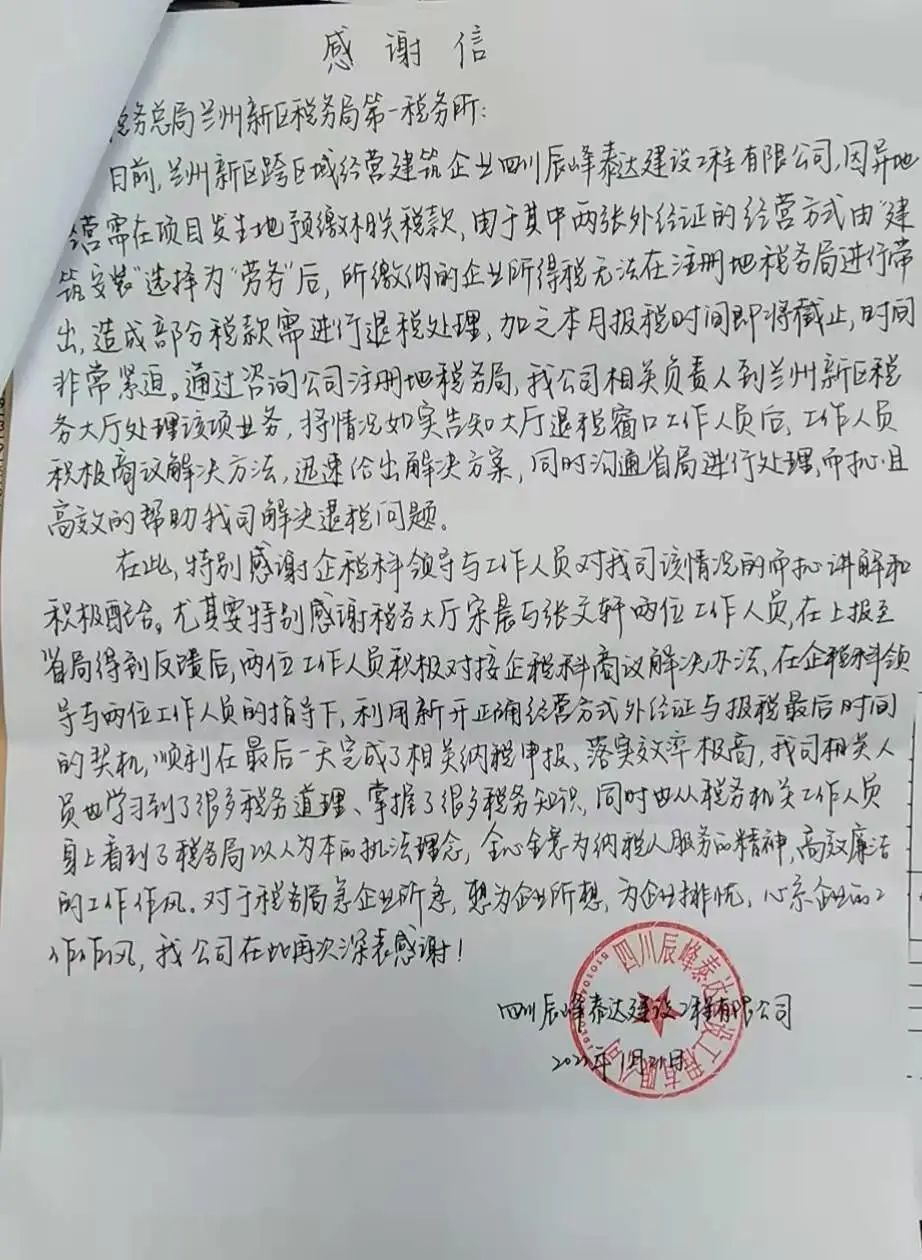 感谢信
税务总局兰州新区税务局第一税务所:
日前,兰州新区跨区域经营建筑企业四川辰峰泰达建设工程有限公司,因异地
经营需在项目发生地预缴相关税款,由于其中两张外经证的经营方式由“建
筑安装”选择为“劳务”后,所缴纳的企业所得税无法在注册地税务局进行带
出,造成部分税款需进行退税处理,加之本月报税时间即将截止,时间
非常紧迫。通过咨询公司注册地税务局,我公司相关负责人到兰州新区税
务大厅处理该项业务,将情况如实告知大厅退税窗口工作人员后,工作人员
积极商议解决方法,迅速给出解决方案,同时沟通省局进行处理,耐心且
高效的帮助我司解决退税问题。
在此,特别感谢企税科领导与工作人员对我司该情况的耐心讲解和
积极配合。尤其要特别感谢税务大厅宋晨与张文轩两位工作人员,在上报至
省局得到反馈后,两位工作人员积极对接企税科商议解决办法,在企税科领
导与两位工作人员的指导下,利用新开正确经营方式外经证与报税最后时间
的契机,顺利在最后一天完成了相关纳税申报、落实效率极高,我司相关人
员也学习到了很多税务道理、掌握了很多税务知识,同时也从税务机关工作人员
身上看到了税务局以人为本的执法理念,全心全意为纳税人服务的精神,高效廉洁
的工作作风。对于税务局急企业所急,想为企业所想,为企业排忧,心系企业的工
作作风,我公司在此再次深表感谢!
四川辰峰泰达建设工程有限公司
四川辰峰泰达建设工程有限公司